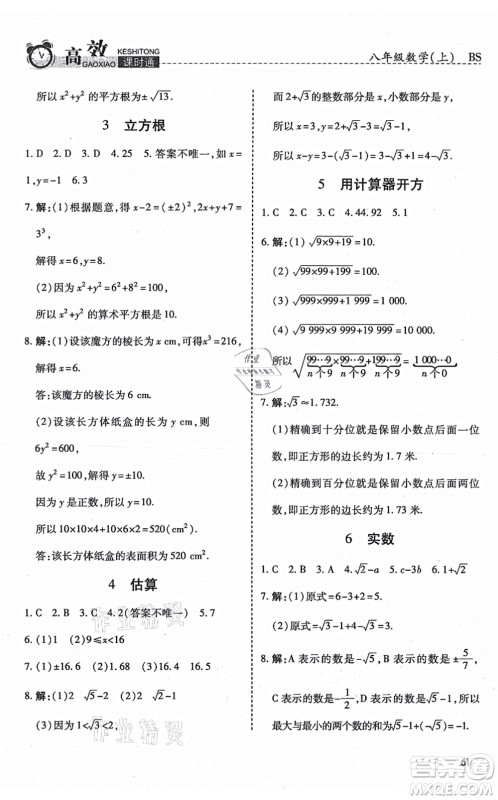 高效
GAOXIAO
KESHITONG
课时通
八年级数学(上) BS
所以 x²+y² 的平方根为±√13.
3 立方根
1. D 2. D 3. D 4. 25 5. 答案不唯一,如 x=
1,y=-1 6. 3
7. 解:(1)根据题意,得 x-2=(±2)²,2x+y+7=
3³,
解得 x=6,y=8.
(2)因为 x²+y²=6²+8²=100,
所以 x²+y² 的算术平方根为 10.
8. 解:(1)设该魔方的棱长为 x cm,可得x³=216,
解得 x=6.
答:该魔方的棱长为 6 cm.
(2)设该长方体纸盒的长为 y cm,可得
6y²=600,
故 y²=100,
解得 y=10.
所以 10×10×4+10×6×2=520(cm²).
答:该长方体纸盒的表面积为 520 cm².
4 估算
1. C 2. B 3. C 4. 2(答案不唯一) 5. 7
6. (1)2 (2)9≤x<16
7. (1)±16.6 (2)-4.6
8. 解:(1)2 √5-2 (2)1
(3)因为 1<√3<2,
而 2+√3 的整数部分是 x,小数部分是 y,
所以 x=3,y=2+√3-3=√3-1,
所以 x-y=3-(√3-1)=4-√3.
5 用计算器开方
1. C 2. C 3. C 4. 44.92 5. 1
6. 解:(1)√9×9+19=10.
(2)√99×99+199=100.
(3)√999×999+1 999=1 000.
(4)√9 999×9 999+19 999=10 000.
所以√99…9×99…9+199…9=1 000…0
n个9 n个9 n个9 n个0
7. 解:√3≈1.732.
(1)精确到十分位就是保留小数点后面一
位,即正方形的边长约为 1.7 米.
(2)精确到百分位就是保留小数点后面两
位,即正方形的边长约为 1.73 米.
6 实数
1. C 2. B 3. B 4. √2-a 5. c-3b 6. 1+√2
7. 解:(1)原式=-1. (2)原式=-√3.
8. 解:A 表示的数是-√5,B 表示的数是±5/7,
C 表示的数是-1/2,D 表示的数是√5-1,所以
最大与最小的两个数的和为√5-1-√5=-1.
作业精灵
作业精灵
作业
精灵
答案圈
61